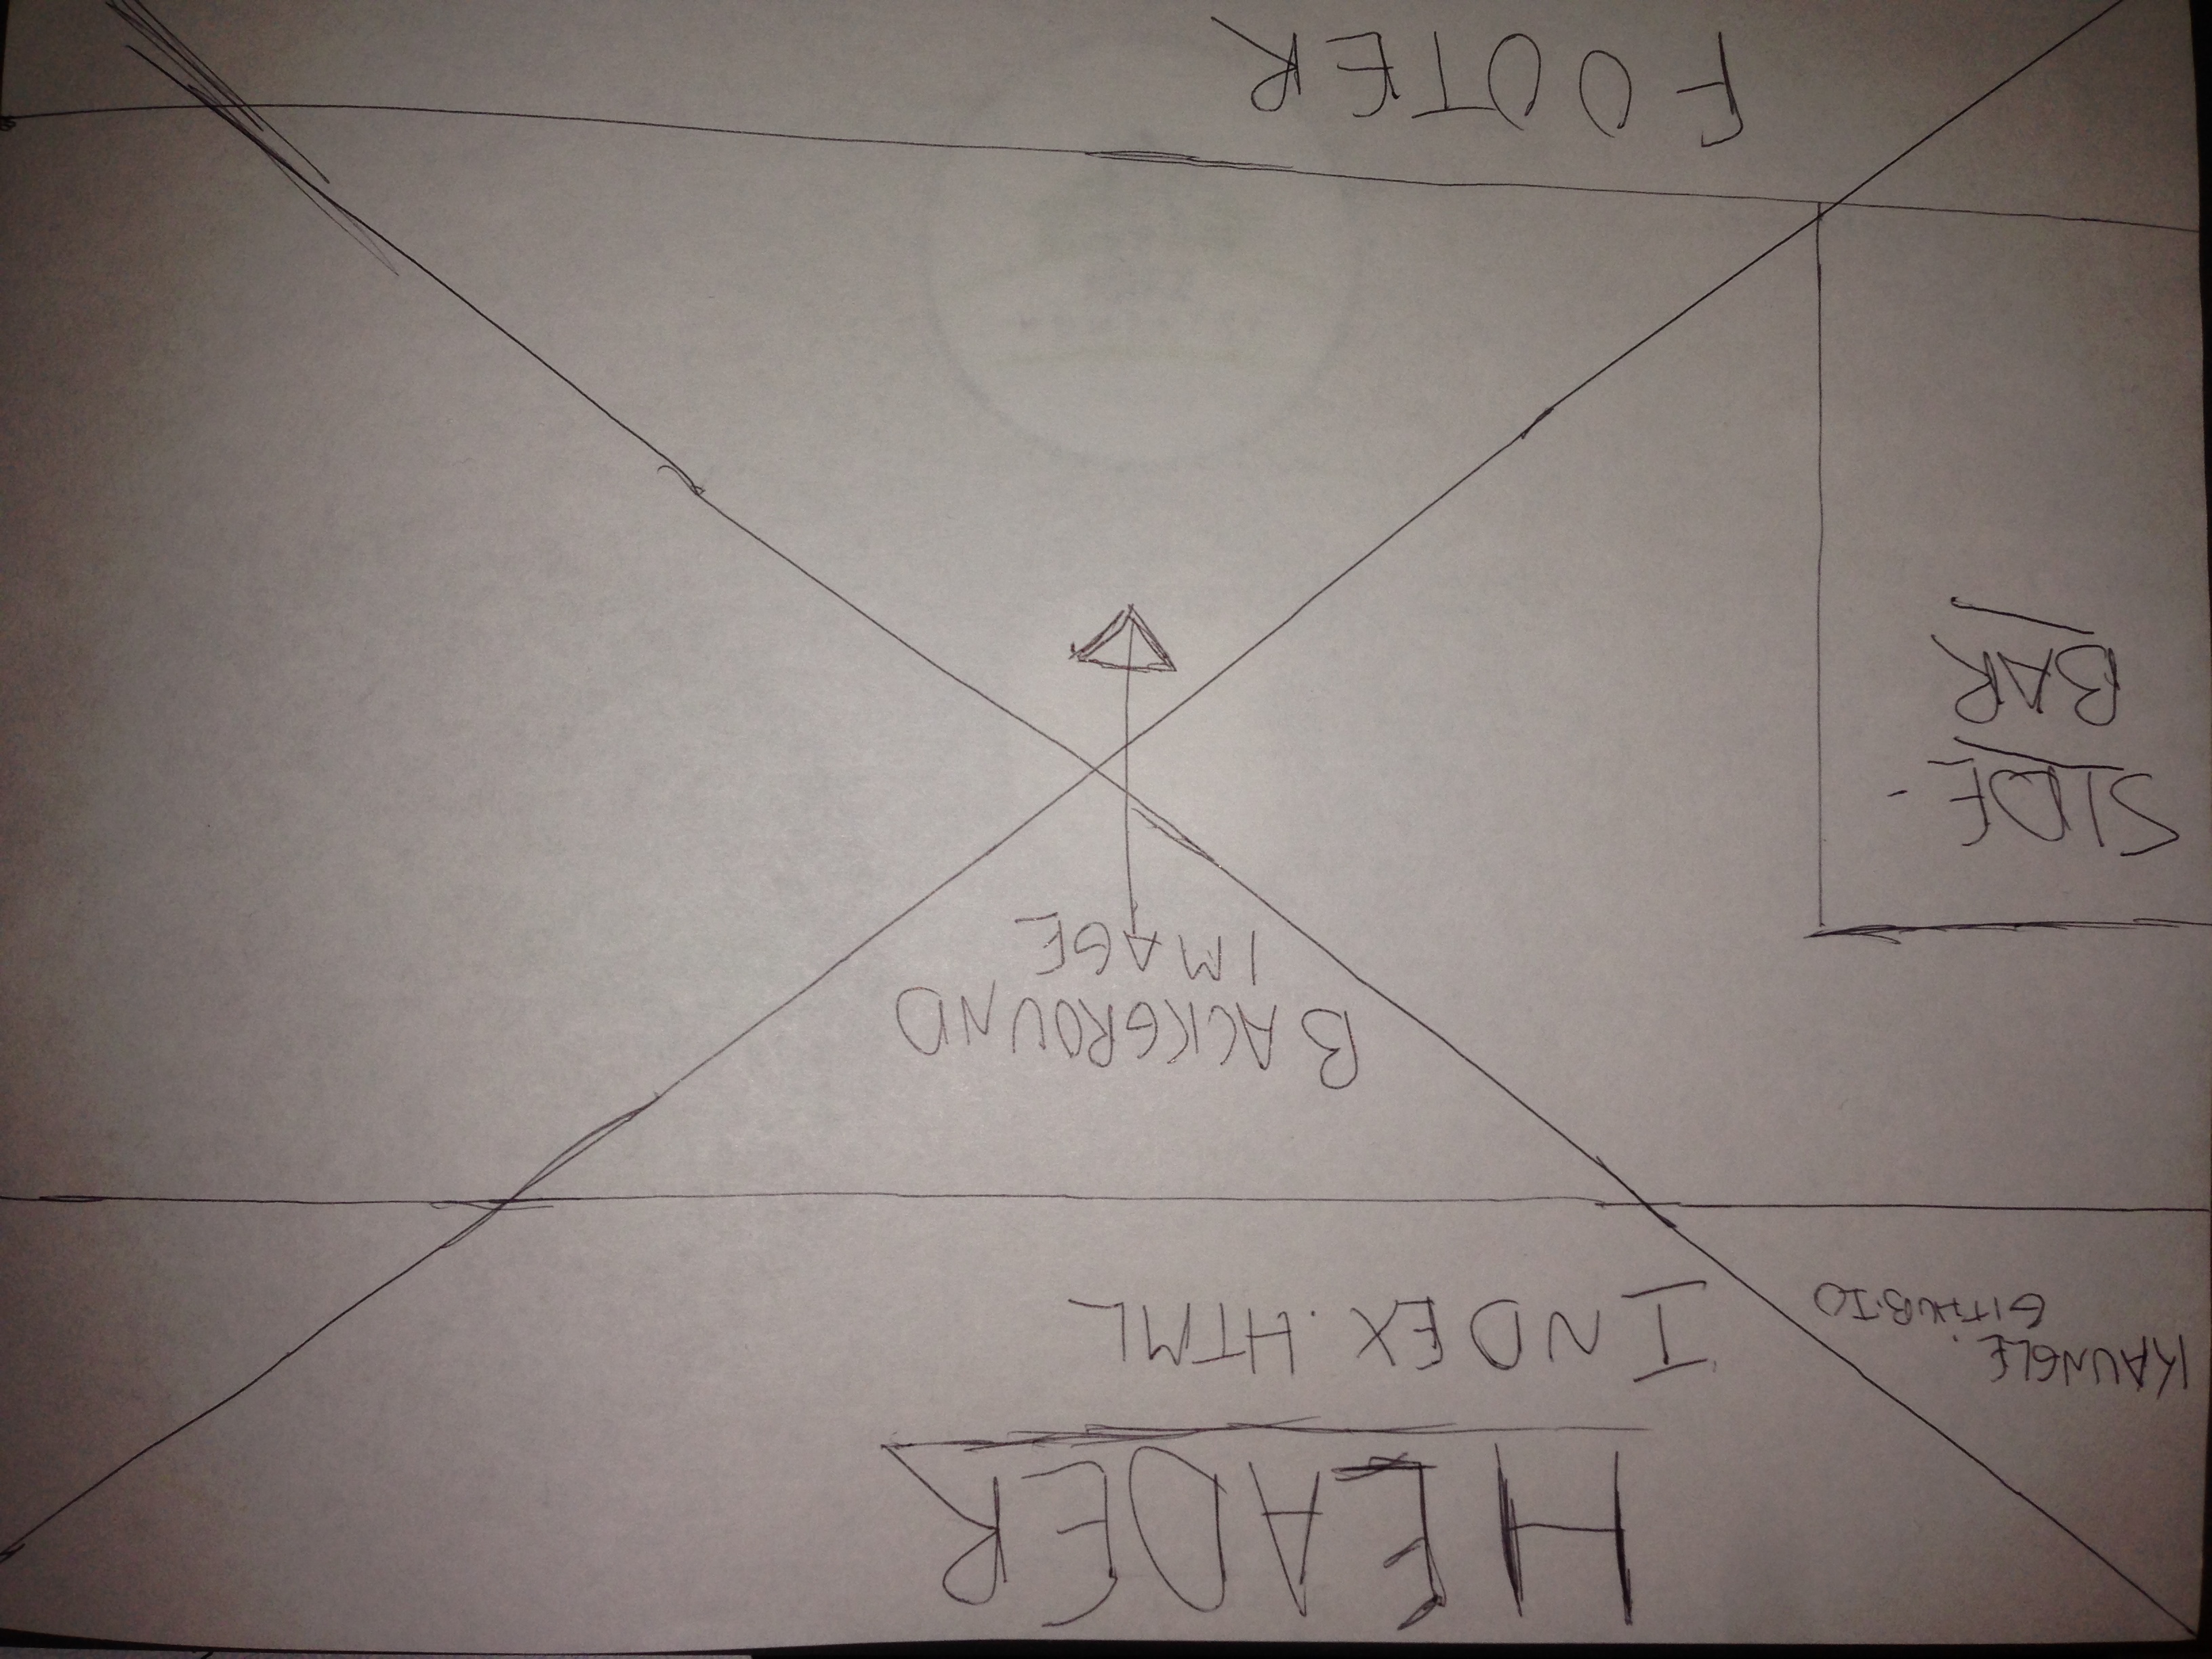 HEADER
KAUNGLE.
GITHUB.IO
INDEX.HTML
BACKGROUND
IMAGE
SIDE-
BAR
FOOTER